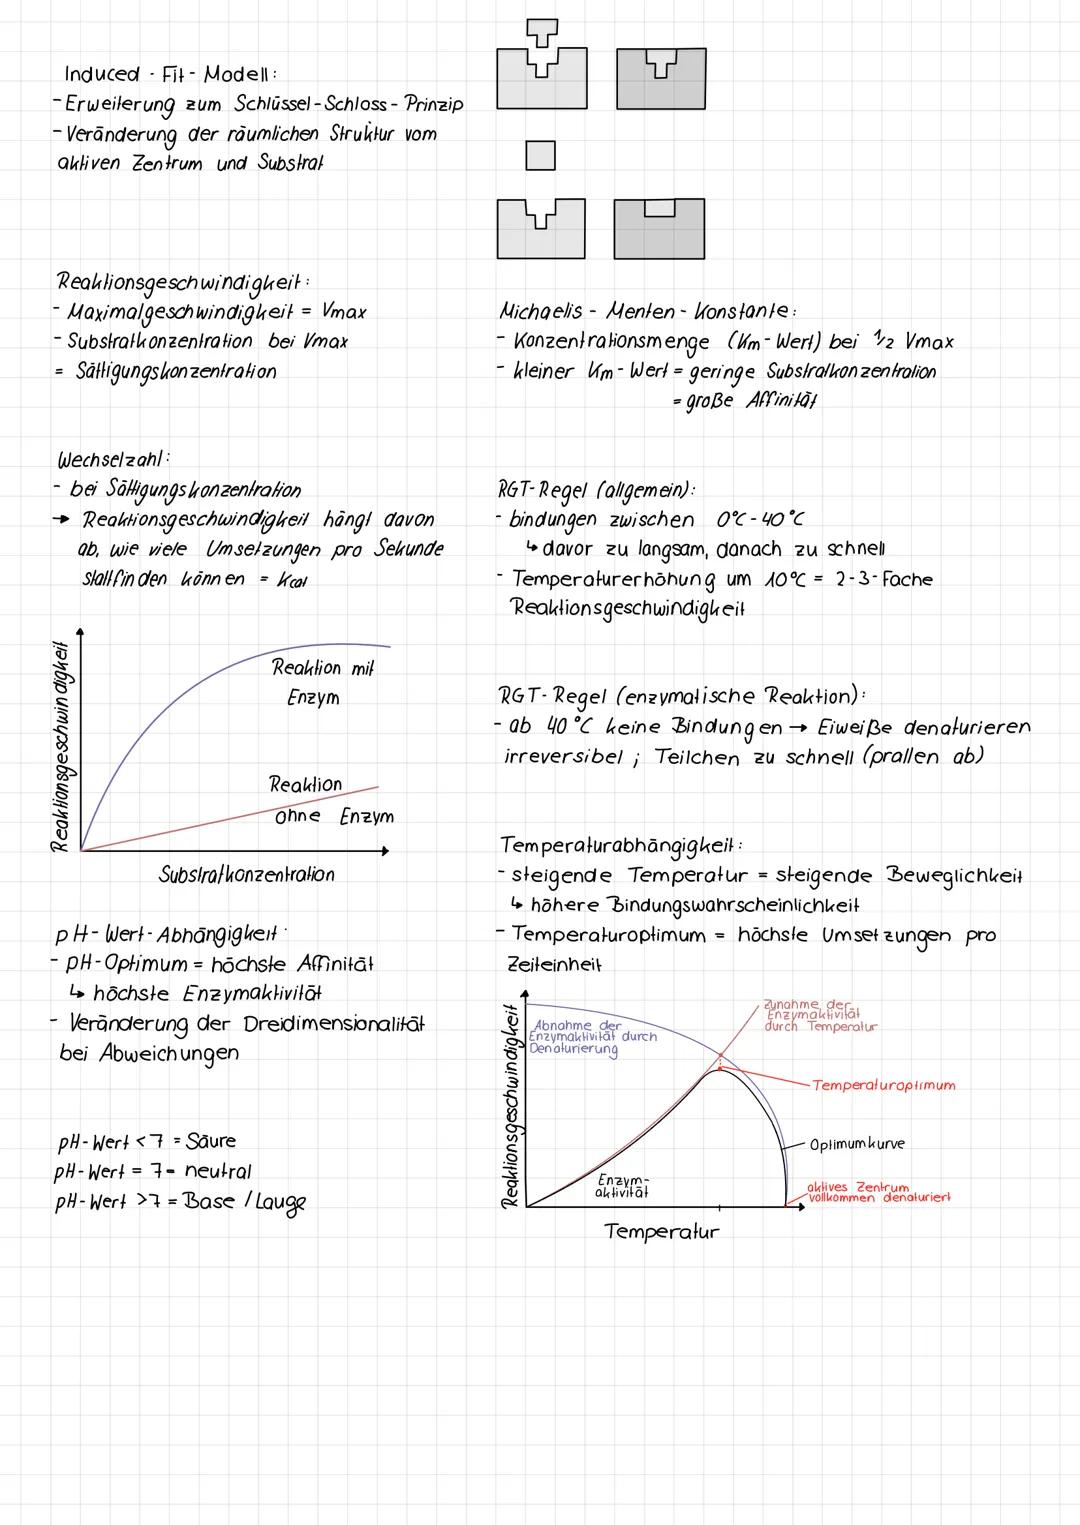 Induced - Fit - Modell:
- Erweiterung zum Schlüssel-Schloss-Prinzip
- Veränderung der räumlichen Struktur vom
aktiven Zentrum und Substrat
Reaktionsgeschwindigkeit:
- Maximalgeschwindigkeit = Vmax
- Substratkonzentration bei Vmax
= Sättigungskonzentration
Michaelis - Menten - Konstante:
- Konzentrationsmenge (Km-Wert) bei 1/2 Vmax
- kleiner Km-Wert = geringe Substratkonzentration
= große Affinität
Wechselzahl:
- bei Sättigungskonzentration
→ Reaktionsgeschwindigkeit hängt davon
ab, wie viele Umsetzungen pro Sekunde
stattfinden können = Kcat
RGT-Regel (allgemein):
- bindungen zwischen 0°C-40°C
↳ davor zu langsam, danach zu schnell
- Temperaturerhöhung um 10°C = 2-3-Fache
Reaktionsgeschwindigkeit
Reaktionsgeschwindigkeit
Reaktion mit
Enzym
Reaktion
ohne Enzym
Substratkonzentration
RGT-Regel (enzymatische Reaktion):
- ab 40°C keine Bindungen → Eiweiße denaturieren
irreversibel ; Teilchen zu schnell (prallen ab)
pH-Wert-Abhängigkeit:
- pH-Optimum = höchste Affinität
↳ höchste Enzymaktivität
- Veränderung der Dreidimensionalität
bei Abweichungen
pH-Wert <7 = Säure
pH-Wert = 7 = neutral
pH-Wert >7 = Base / Lauge
Temperaturabhängigkeit:
- steigende Temperatur = steigende Beweglichkeit
↳ höhere Bindungswahrscheinlichkeit
- Temperaturoptimum = höchste Umsetzungen pro
Zeiteinheit
Reaktionsgeschwindigkeit
Abnahme der
Enzymaktivität durch
Denaturierung
Zunahme der
Enzymaktivität
durch Temperatur
Temperaturoptimum
Optimumkurve
Enzym-
aktivität
aktives Zentrum
vollkommen denaturiert
Temperatur